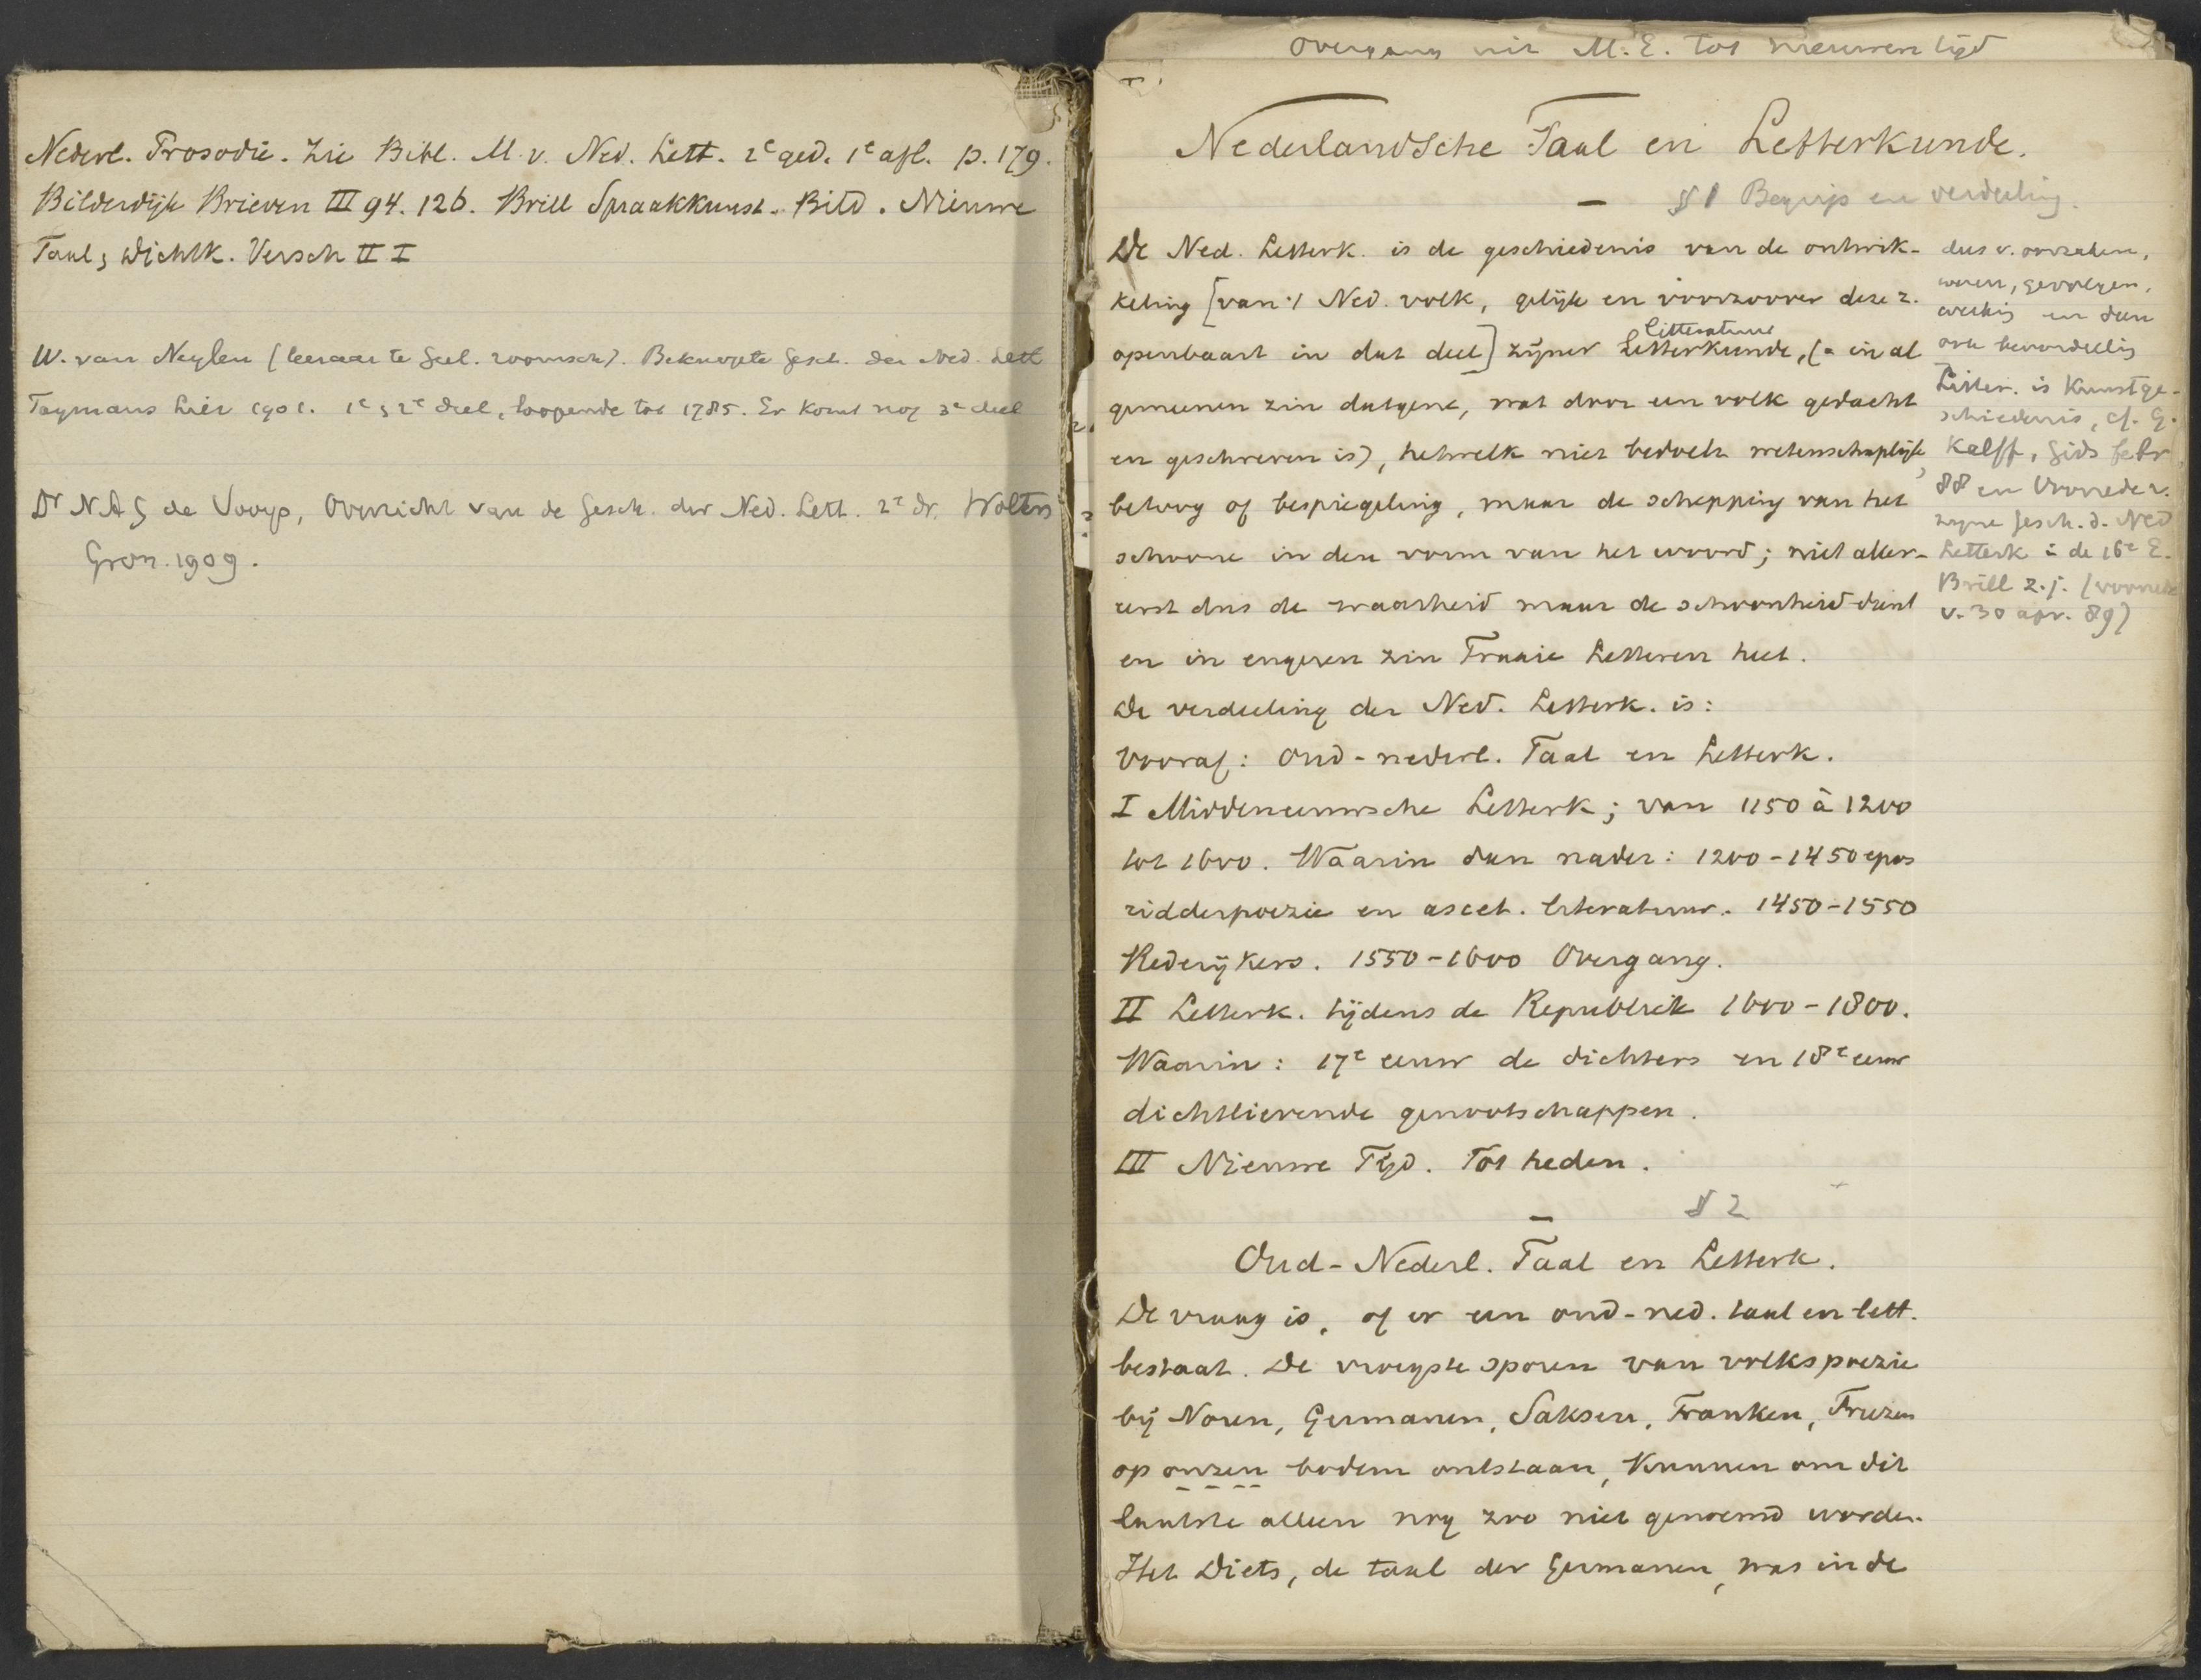 Nederl. Prosodie. Zie Bibl. M. v. Ned. Lett. 2e ged. 1e afl. p. 179.
Bilderdijk Brieven III 94. 126. Brill Spraakkunst. Bild. Nieuwe
Taal & Dichtk. Versch II I
W. van Neylen (leeraar te Geel. roomsch). Beknopte Gesch. der Ned. Lett
Taymans Lier 1901. 1e & 2e deel, loopende tot 1785. Er komt nog 3e deel
Dr N A G de Vooys, Overzicht van de Gesch. der Ned. Lett. 2e dr. Wolters
Gron. 1909.
Overgang uit M.E. tot nieuwen tijd
Nederlandsche Taal en Letterkunde.
§ 1 Begrip en verdeeling.
De Ned. Letterk. is de geschiedenis van de ontwik-
keling [van 't Ned. volk, gelijk en voorzoover deze z.
litteratuur
openbaart in dat deel] zijner Letterkunde, (= in al
gemeenen zin datgene, wat door een volk gedacht
en geschreven is), hetwelk niet bedoelt wetenschaplijk
betoog of bespiegeling, maar de schepping van het
schoone in den vorm van het woord; niet aller-
eerst dus de waarheid maar de schoonheid dient
en in engeren zin Fraaie Letteren heet.
De verdeeling der Ned. Letterk. is:
Vooraf: Oud-nederl. Taal en Letterk.
I Middeneeuwsche Letterk; van 1150 à 1200
tot 1600. Waarin dan nader: 1200-1450 epos
ridderpoezie en ascet. literatuur. 1450-1550
Rederijkers. 1550-1600 Overgang.
II Letterk. tijdens de Republiek 1600-1800.
Waarin: 17e eeuw de dichters en 18e eeuw
dichtlievende genootschappen.
III Nieuwe Tijd. Tot heden.
§ 2
Oud-Nederl. Taal en Letterk.
De vraag is, of er een oud-ned. taal en lett.
bestaat. De vroegste sporen van volkspoezie
bij Noren, Germanen, Saksen, Franken, Friezen
op onzen bodem ontstaan, kunnen om dit
laatste alleen nog zoo niet genoemd worden.
Het Diets, de taal der Germanen, was in de
dus v. oorzaken,
wezen, gevolgen,
werking en dan
ook beoordeeling
Litter. is Kunstge-
schiedenis, cf. G.
Kalff, Gids febr
88 en Voorrede v.
zijne Gesch. d. Ned
Letterk in de 16e E.
Brill z.j. (voorrede
v. 30 apr. 89)